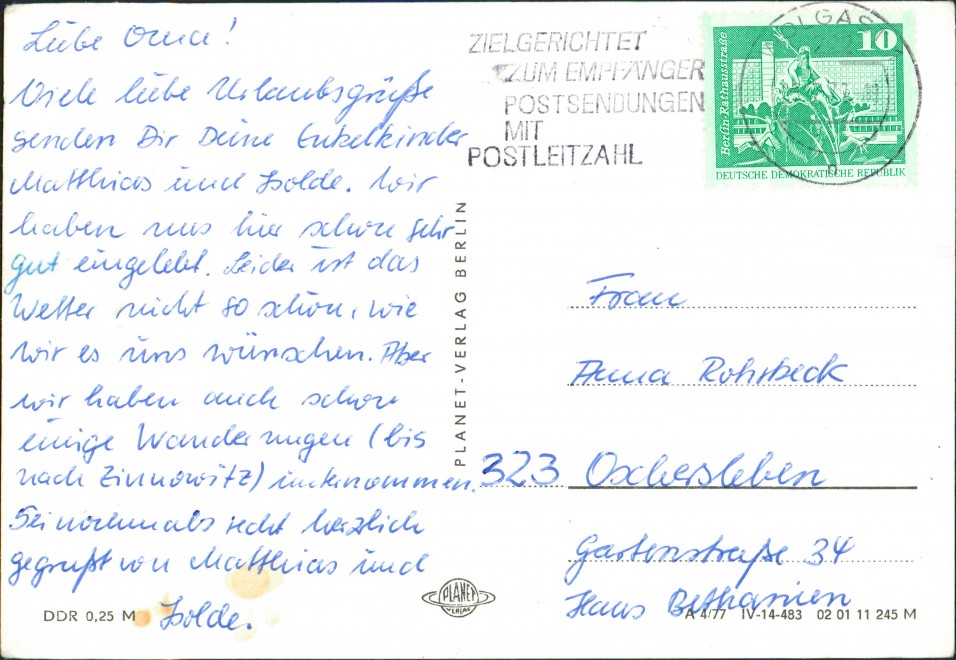 Liebe Oma!
Viele liebe Urlaubsgrüße
senden Dir Deine Enkelkinder
Matthias und Isolde. Wir
haben uns hier schon sehr
gut eingelebt. Leider ist das
Wetter nicht so schön, wie
wir es uns wünschen. Aber
wir haben auch schon
einige Wanderungen (bis
nach Zinnowitz) unternommen.
Sei nochmals recht herzlich
gegrüßt von Matthias und
Isolde.
DDR 0,25 M
PLANET-VERLAG BERLIN
PLANET
VERLAG
ZIELGERICHTET
ZUM EMPFÄNGER
POSTSENDUNGEN
MIT
POSTLEITZAHL
OLGAS
10
Berlin, Rathausstraße
DEUTSCHE DEMOKRATISCHE REPUBLIK
Frau
Anna Rohrbeck
323 Oschersleben
Gartenstraße 34
Haus Bethanien
A 4/77 IV-14-483 02 01 11 245 M